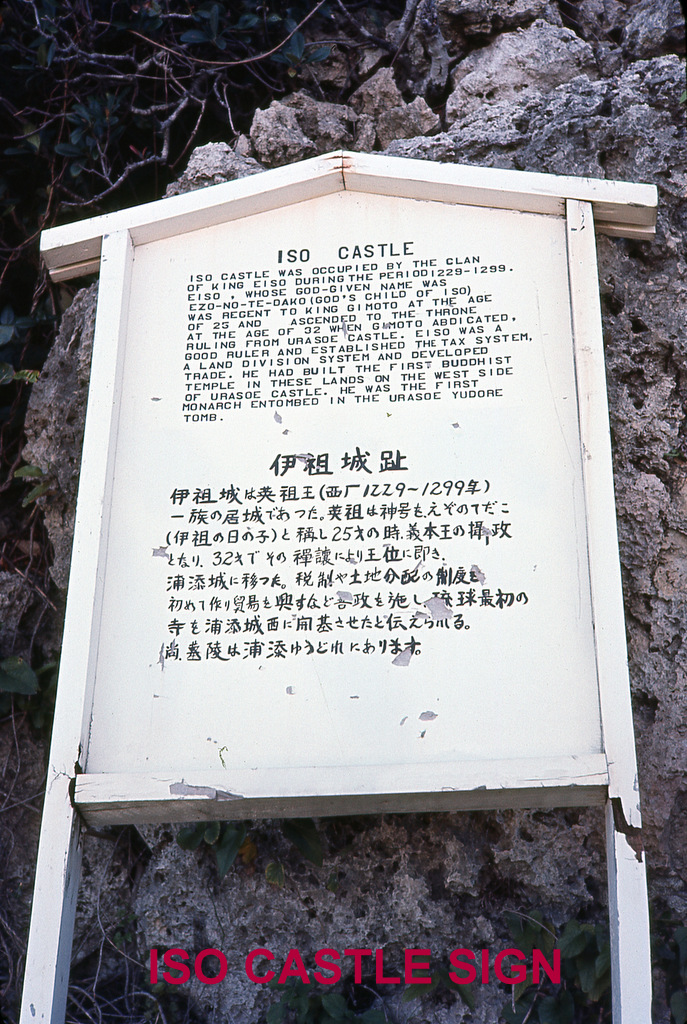 ISO CASTLE
ISO CASTLE WAS OCCUPIED BY THE CLAN
OF KING EISO DURING THE PERIOD 1229-1299.
EISO, WHOSE GOD-GIVEN NAME WAS
EZO-NO-TE-DAKO (GOD'S CHILD OF ISO)
WAS REGENT TO KING GIMOTO AT THE AGE
OF 25 AND ASCENDED TO THE THRONE
AT THE AGE OF 32 WHEN GIMOTO ABDICATED,
RULING FROM URASOE CASTLE. EISO WAS A
GOOD RULER AND ESTABLISHED THE TAX SYSTEM,
A LAND DIVISION SYSTEM AND DEVELOPED
TRADE. HE HAD BUILT THE FIRST BUDDHIST
TEMPLE IN THESE LANDS ON THE WEST SIDE
OF URASOE CASTLE. HE WAS THE FIRST
MONARCH ENTOMBED IN THE URASOE YUDORE
TOMB.
伊祖城趾
伊祖城は英祖王(西厂1229~1299年)
一族の居城であつた。英祖は神号をえぞのてだこ
(伊祖の日の子)と稱し25才の時、義本王の攝政
となり、32才でその禅讓により王位に即き、
浦添城に移つた。税制や土地分配の制度を
初めて作り貿易を興すなど善政を施し琉球最初の
寺を浦添城西に開基させたと伝えられる。
尚、墓陵は浦添ゆうどれにあります。
ISO CASTLE SIGN